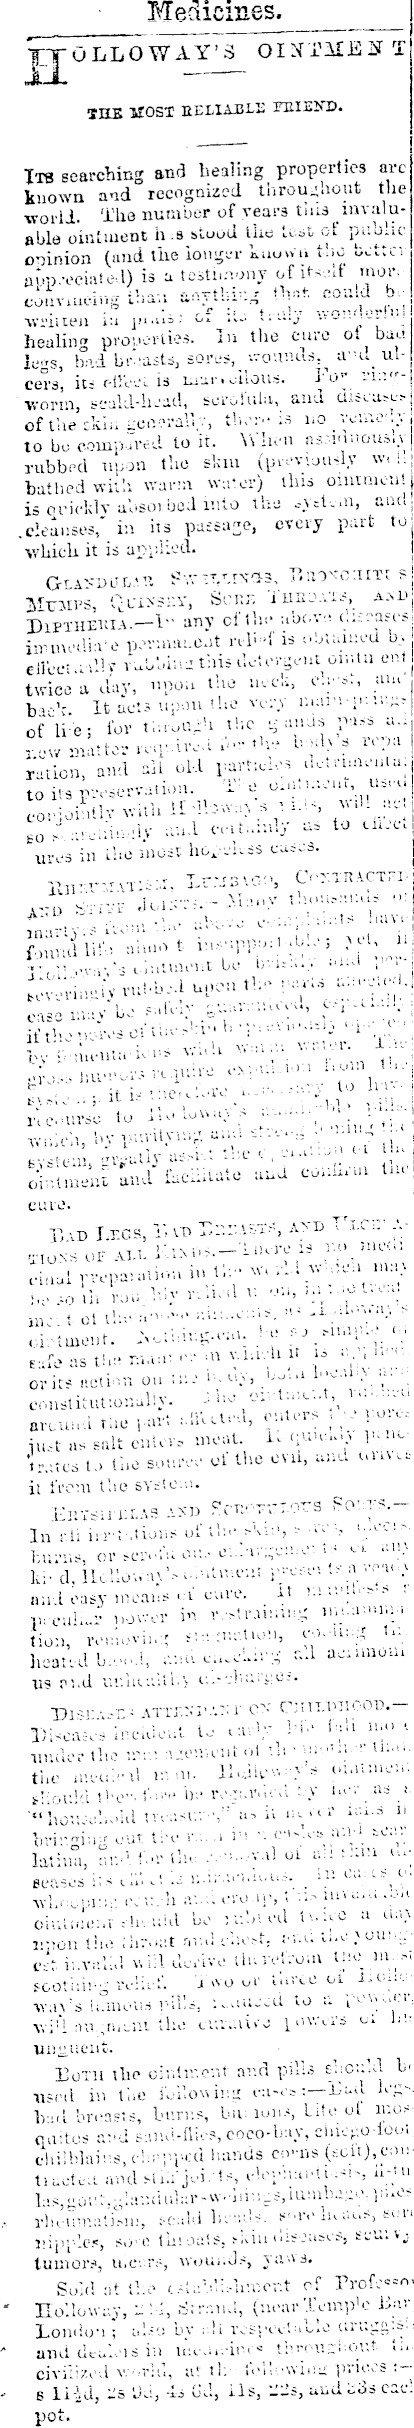 Medicines.
HOLLOWAY'S OINTMENT
THE MOST RELIABLE FRIEND.
ITS searching and healing properties are
known and recognized throughout the
world. The number of years this invalu-
able ointment h.s stood the test of public
opinion (and the longer known the better
appreciated) is a testimony of itself more
convincing than anything that could be
written in praise of its truly wonderful
healing properties. In the cure of bad
legs, bad breasts, sores, wounds, and ul-
cers, its effect is marvellous. For ring-
worm, scald-head, scrofula, and diseases
of the skin generally, there is no remedy
to be compared to it. When assiduously
rubbed upon the skin (previously well
bathed with warm water) this ointment
is quickly absorbed into the system, and
cleanses, in its passage, every part to
which it is applied.
GLANDULAR SWELLINGS, BRONCHITIS
MUMPS, QUINSEY, SORE THROATS, AND
DIPTHERIA.—In any of the above diseases
immediate permanent relief is obtained by
effectually rubbing this detergent ointment
twice a day, upon the neck, chest, and
back. It acts upon the very main-springs
of life; for through the glands pass all
new matter required for the body's repa
ration, and all old particles detrimental
to its preservation. The ointment, used
conjointly with Holloway's pills, will act
so searchingly and certainly as to effect
ures in the most hopeless cases.
RHEUMATISM, LUMBAGO, CONTRACTED
AND STIFF JOINTS.—Many thousands of
martyrs from the above complaints have
found life almo t insupportable; yet, if
Holloway's ointment be briskly and per-
severingly rubbed upon the parts affected,
ease may be safely guaranteed, especially
if the pores of the skin be previously opened
by fomentations with warm water. The
gross humors require expulsion from the
system; it is therefore necessary to have
recourse to Holloway's pills,
which, by purifying and strengthening the
system, greatly assist the operation of the
ointment and facilitate and confirm the
cure.
BAD LEGS, BAD BREASTS, AND ULCERA-
TIONS OF ALL KINDS.—There is no medi
cinal preparation in the world which may
be so thoroughly relied upon, in the treat
ment of the above ailments, as Holloway's
ointment. Nothing can be so simple or
safe as the manner in which it is applied,
or its action on the body, both locally and
constitutionally. The ointment, rubbed
around the part affected, enters the pores
just as salt enters meat. It quickly pene
trates to the source of the evil, and drives
it from the system.
ERYSIPELAS AND SCROFULOUS SORES.—
In all irritations of the skin, sores, ulcers,
burns, or scrofulous enlargements of any
kind, Holloway's ointment presents a ready
and easy means of cure. It manifests a
peculiar power in restraining inflamma
tion, removing stagnation, cooling the
heated blood, and checking all acrimoni
us and unhealthy discharges.
DISEASES ATTENDANT ON CHILDHOOD.—
Diseases incident to early life fall more
under the management of the mother than
the medical man. Holloway's ointment
should therefore be regarded by her as a
"household treasure," as it never fails in
bringing out the rash in measles and scar
latina, and for the removal of all skin di-
seases its effect is miraculous. In cases of
whooping cough and croup, this invaluable
ointment should be rubbed twice a day
upon the throat and chest, and the young-
est invalid will derive therefrom the most
soothing relief. Two or three of Hollo-
way's famous pills, reduced to a powder,
will augment the curative powers of his
unguent.
BOTH the ointment and pills should be
used in the following cases:—Bad legs,
bad breasts, burns, bunions, bite of mos-
quitos and sand-flies, coco-bay, chiego-foot
chilblains, chapped hands corns (soft), con
tracted and stiff joints, elephantiasis, fistu
las, gout, glandular swellings, lumbago, piles
rheumatism, scald heads, sore heads, sore
nipples, sore throats, skin diseases, scurvy
tumors, ulcers, wounds, yaws.
Sold at the establishment of Professor
Holloway, 244, Strand, (near Temple Bar
London; also by all respectable druggists
and dealers in medicines throughout the
civilized world, at the following prices:—
s 1½d, 2s 9d, 4s 6d, 11s, 22s, and 33s each
pot.